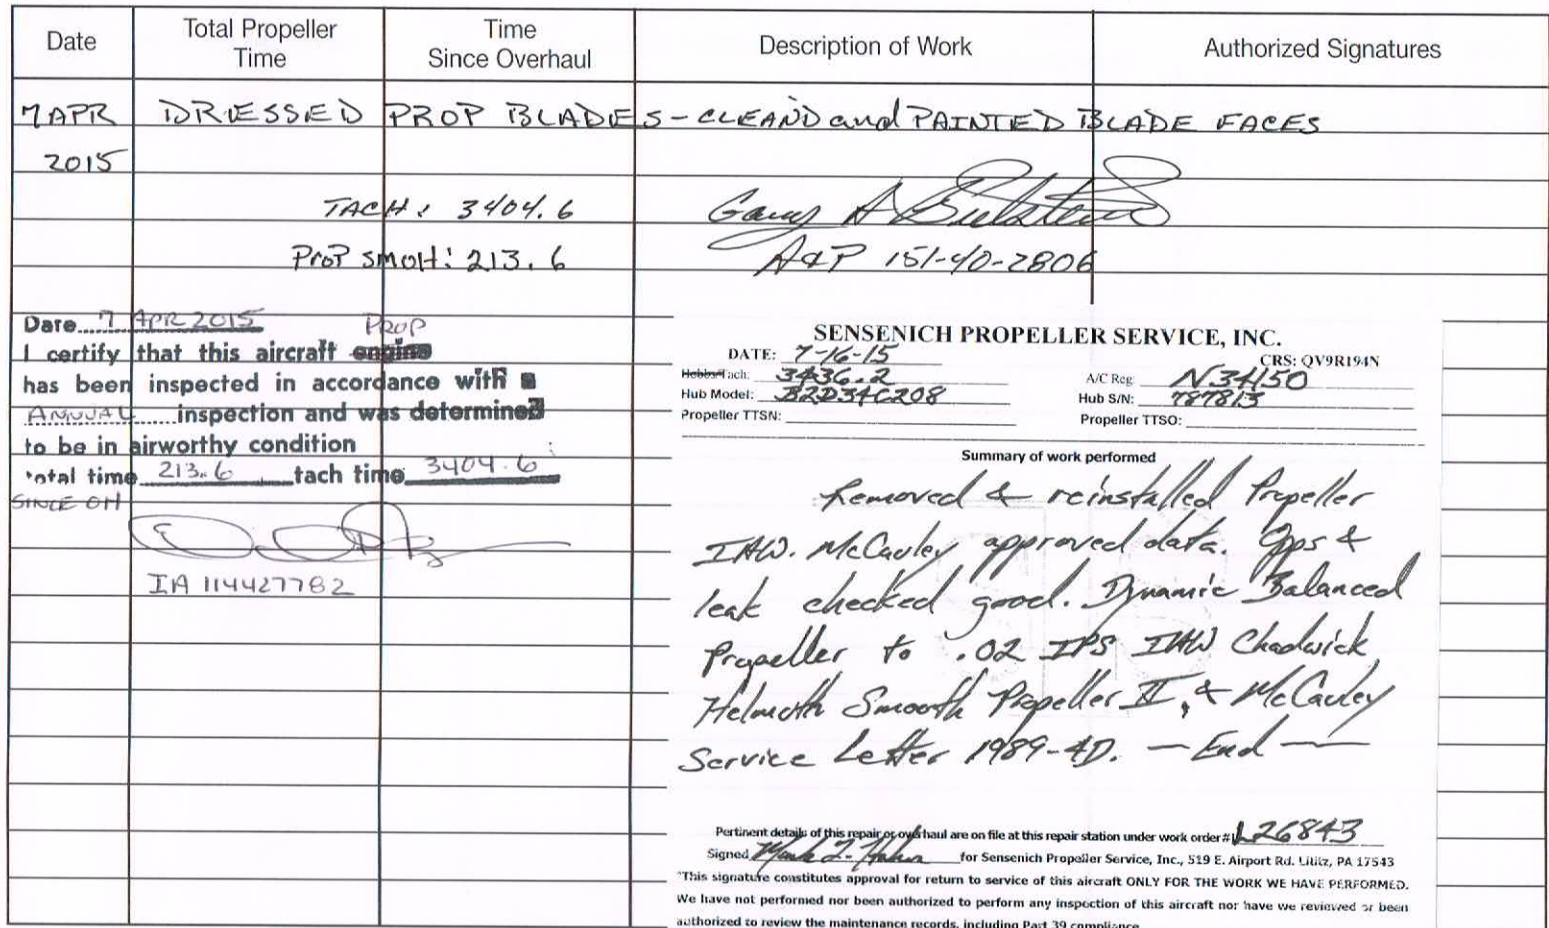 Date
Total Propeller
Time
Time
Since Overhaul
Description of Work
Authorized Signatures
7 APR DRESSED PROP BLADES - CLEAND and PAINTED BLADE FACES
2015
TACH: 3404.6
PROP SMOH: 213.6
Gary A
A&P 151-40-2806
Date 7 APR 2015
PROP
I certify that this aircraft engine
has been inspected in accordance with a
ANNUAL inspection and was determined
to be in airworthy condition
total time 213.6 tach time 3404.6
SINCE OH
IA 114427782
SENSENICH PROPELLER SERVICE, INC.
DATE: 7-16-15
CRS: QV9R194N
Hobbs/Tach: 3436.2
A/C Reg N34150
Hub Model: B2D34C208
Hub S/N: 787813
Propeller TTSN:
Propeller TTSO:
Summary of work performed
Removed & reinstalled Propeller
IAW. McCauley approved data. Ops &
leak checked good. Dynamic Balanced
Propeller to .02 IPS IAW Chadwick
Helmuth Smooth Propeller II, & McCauley
Service Letter 1989-4D. — End —
Pertinent details of this repair or overhaul are on file at this repair station under work order# L26843
Signed for Sensenich Propeller Service, Inc., 519 E. Airport Rd. Lititz, PA 17543
"This signature constitutes approval for return to service of this aircraft ONLY FOR THE WORK WE HAVE PERFORMED.
We have not performed nor been authorized to perform any inspection of this aircraft nor have we reviewed or been
authorized to review the maintenance records, including Part 39 compliance